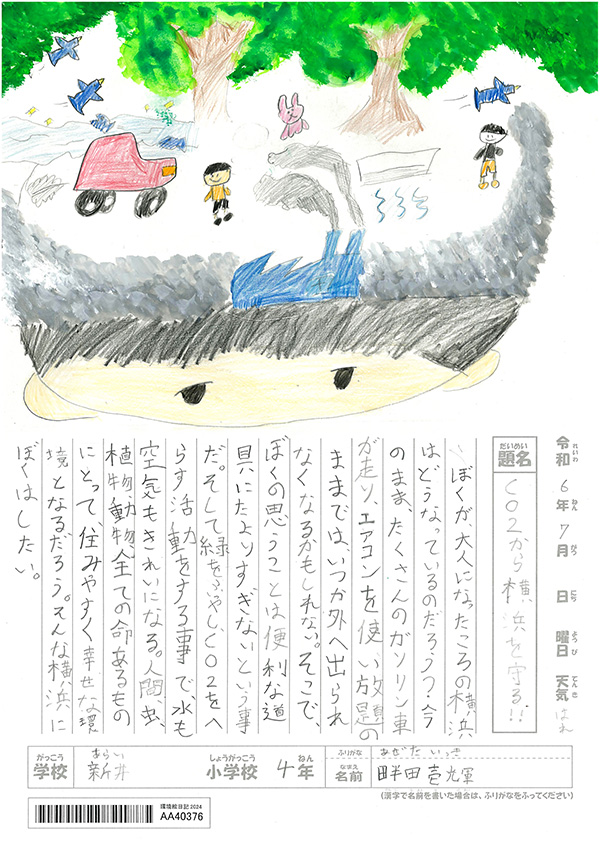 令和 6年 7月 日 曜日 天気 はれ
れいわ ねん がつ にち ようび てんき
だいめい
題名 CO2から横浜を守る!!
ぼくが、大人になったころの横浜
はどうなっているのだろう?今
のまま、たくさんのガソリン車
が走り、エアコンを使い放題の
ままでは、いつか外へ出られ
なくなるかもしれない。そこで、
ぼくの思うことは便利な道
具にたよりすぎないという事
だ。そして緑をふやし、CO2をへ
らす活動をする事で、水も
空気もきれいになる。人間、虫、
植物、動物、全ての命あるもの
にとって、住みやすく幸せな環
境となるだろう。そんな横浜に
ぼくはしたい。
がっこう あらい しょうがっこう ねん ふりがな あぜだ いっき
学校 新井 小学校 4年 なまえ 名前 畔田壱輝
(漢字で名前を書いた場合は、ふりがなをふってください)
環境絵日記2024
AA40376